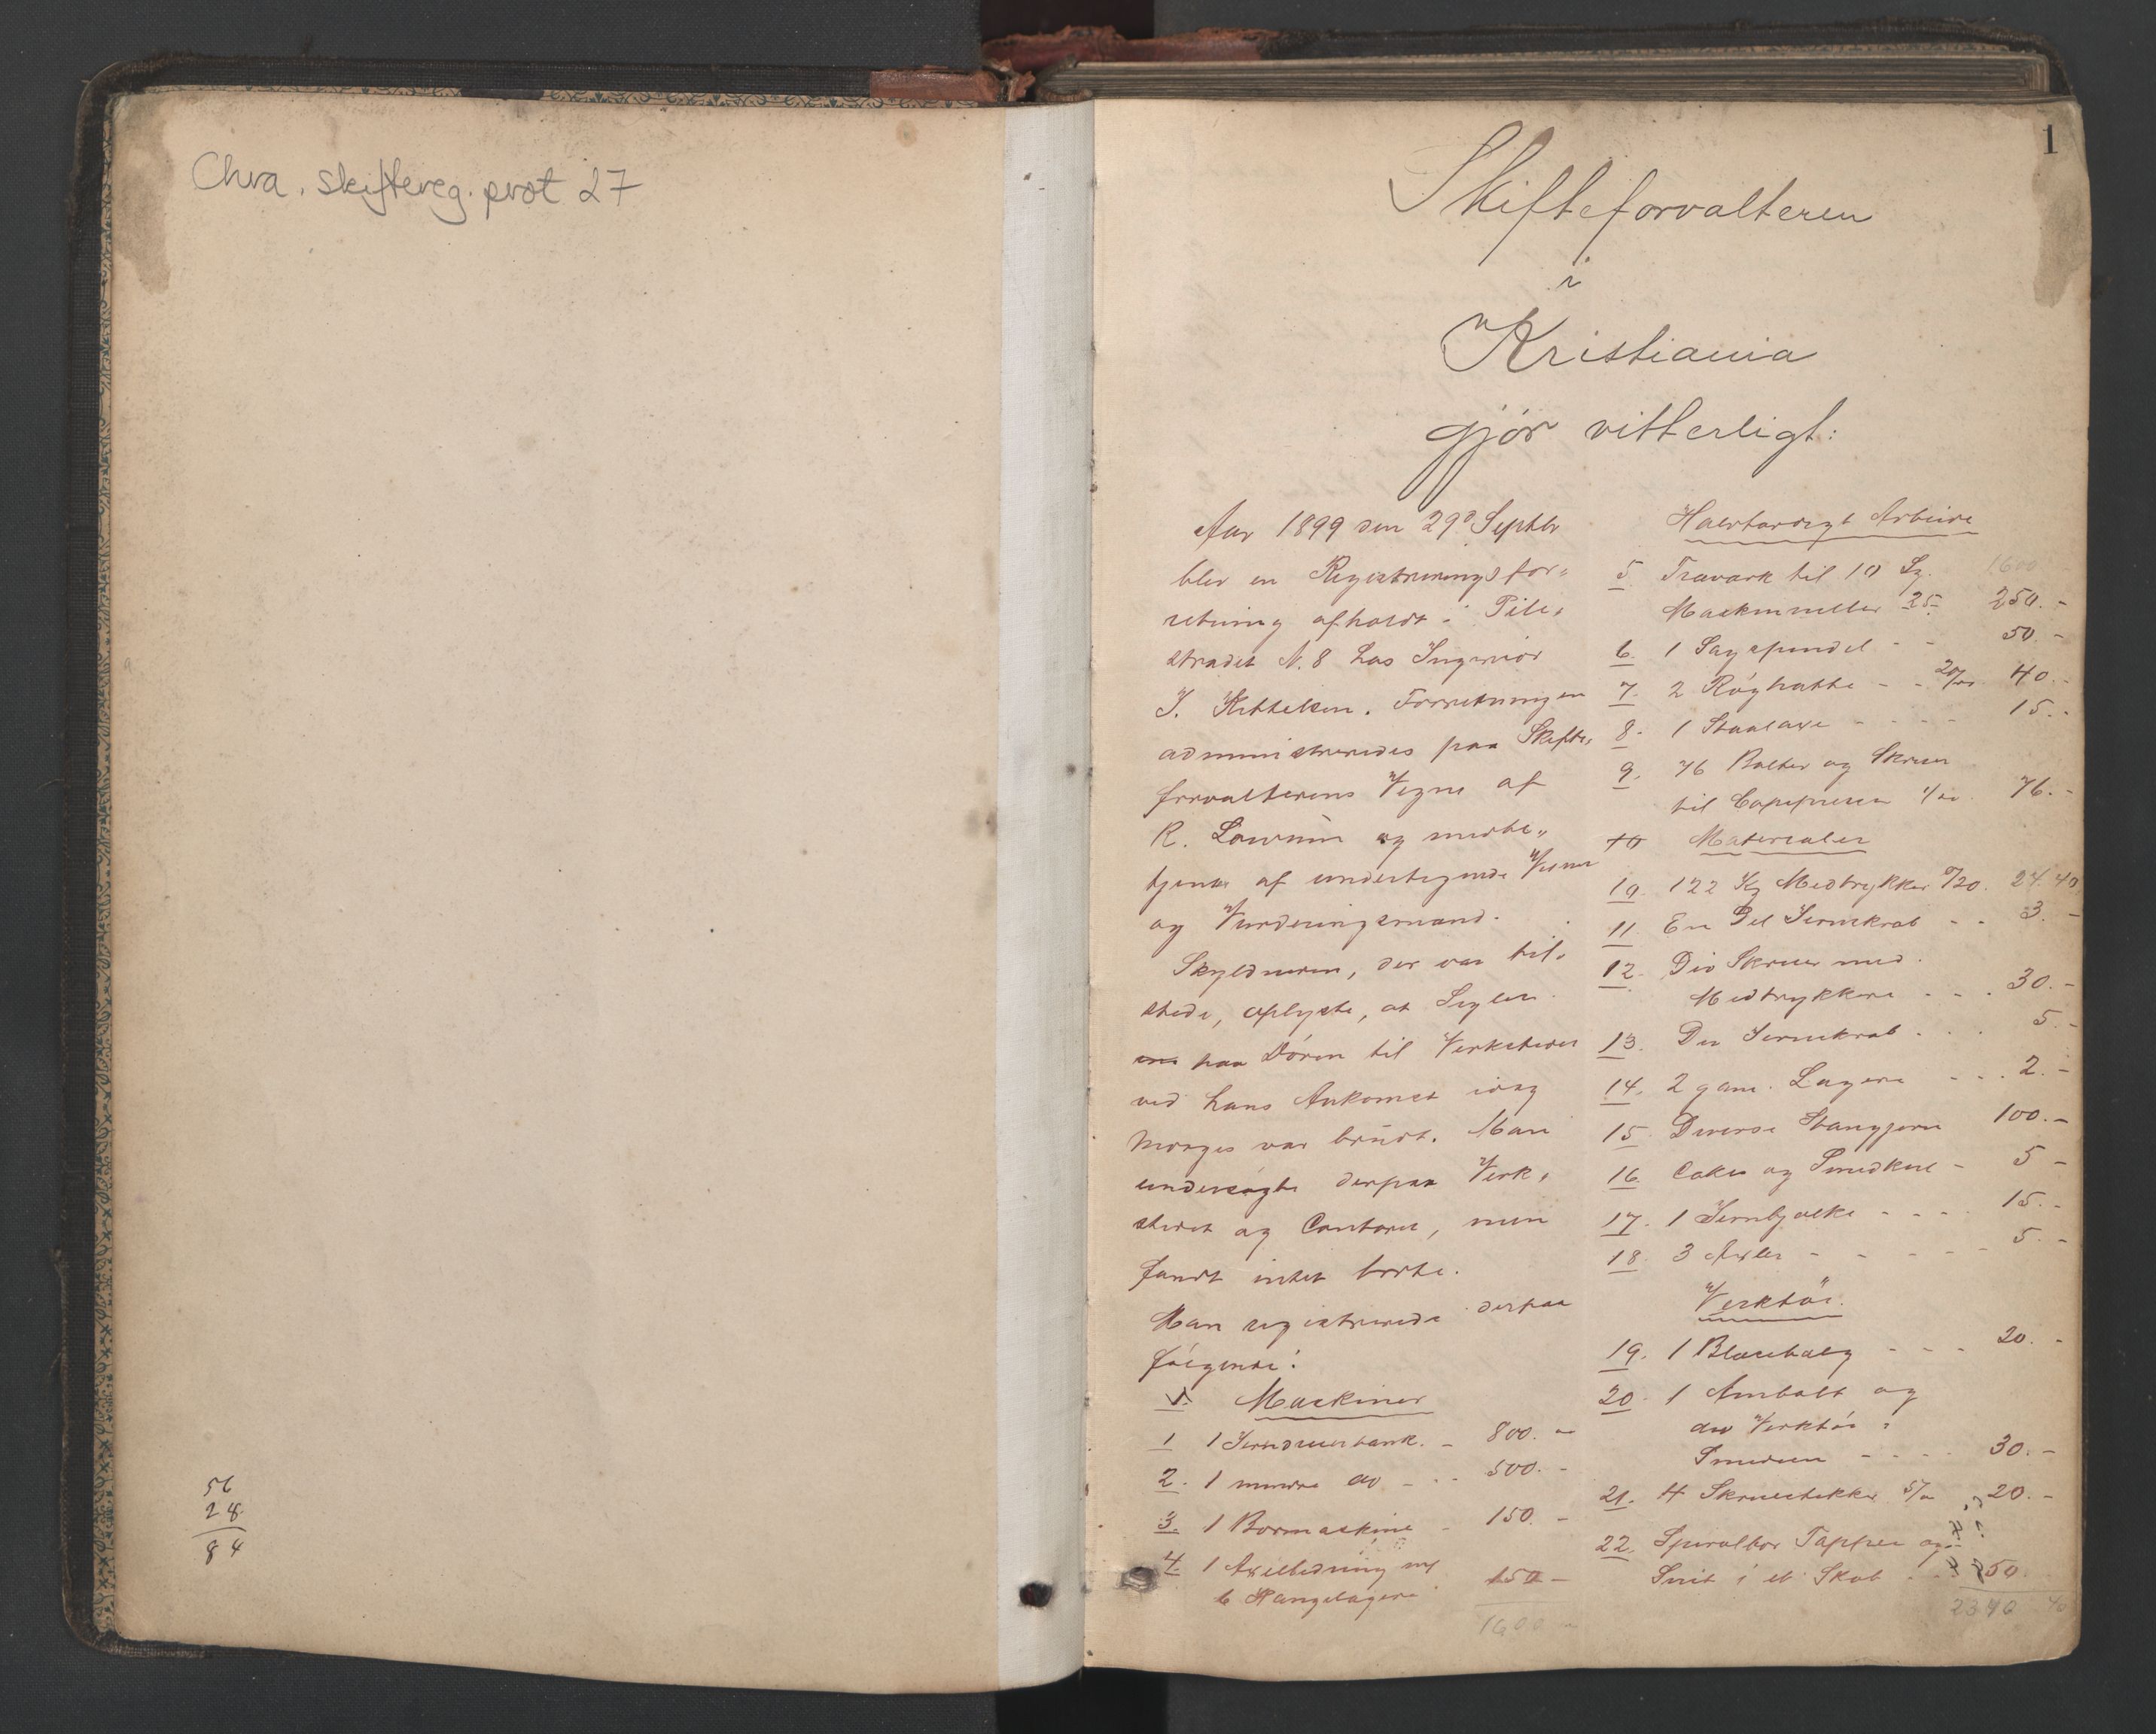 Chra. skiftereg. prot 27
56
28
84
1
Skifteforvalteren
i
Kristiania
gjör vitterligt:
Aar 1899 den 29d Septbr
blev en Registreringsfor-
retning afholdt i Pile-
strædet N. 8 hos Ingeniör
J. Kittelsen. Forretningen
administreredes paa Skifte-
forvalterens Vegne af
R. Lowum og medbe-
tjentes af undertegnede Vidner
og Vurderingsmænd.
Skyldneren, der var til-
stede, oplyste, at Seglen
paa Dören til Verkstedet
ved hans Ankomst idag
morges var brudt. Man
undersögte derpaa Verk-
stedet og Contoret, men
fandt intet borte.
Man registrerede derpaa
fölgende:
Maskiner
1 1 Jerndreierbænk. - 800. -
2. 1 mindre do - - 500. -
3. 1 Bormaskine - 150. -
4. 1 Axelledning m/
6 Hængelagere 150 -
1600 -
Halvfærdigt Arbeide
5. Træværk til 10 St. 1600
25 250. -
6. 1 Sagspindel - - 50. -
7. 2 Röghatte - - 20/00 40. -
8. 1 Staalaxe - - - - 15. -
9. 76 Bolter og Skruer
til 1/00 76. -
10 Materialer
10. 122 Kg Medtrykker 0/20. 24.40
11. En Del Jernskrab - - 3. -
12. Div Skruer med
Medtrykkere - - - 30. -
13. Div Jernskrab - - - 5. -
14. 2 gam. Lagere - - - 2. -
15. Diverse Stangjern 100. -
16. Cokes og Smedkul - 5 -
17. 1 Jernbjælke - - - - 15. -
18. 3 Axler - - - - - 5. -
Verktöi.
19. 1 Blæsebælg - - - 20. -
20. 1 Ambolt og
div Verktöi i
Smedien - - - - 30. -
21. 4 Skruestikker 5/00 20. -
22. Spiralbor Tapper og
Snit i et Skab - - 50.
2340 40